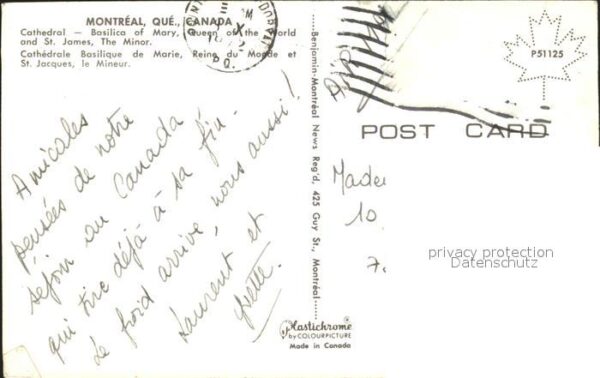 MONTRÉAL, QUÉ., CANADA
Cathedral — Basilica of Mary, Queen of the World
and St. James, The Minor.
Cathédrale Basilique de Marie, Reine du Monde et
St. Jacques, le Mineur.
Amicales
pensées de notre
séjour au Canada
qui tire déjà à sa fin -
Le froid arrive, nous aussi !
Laurent et
Yvette.
Benjamin-Montréal News Reg'd, 425 Guy St., Montréal
Plastichrome
by COLOURPICTURE
Made in Canada
PAR AVION
P51125
POST CARD
10
7.
privacy protection
Datenschutz